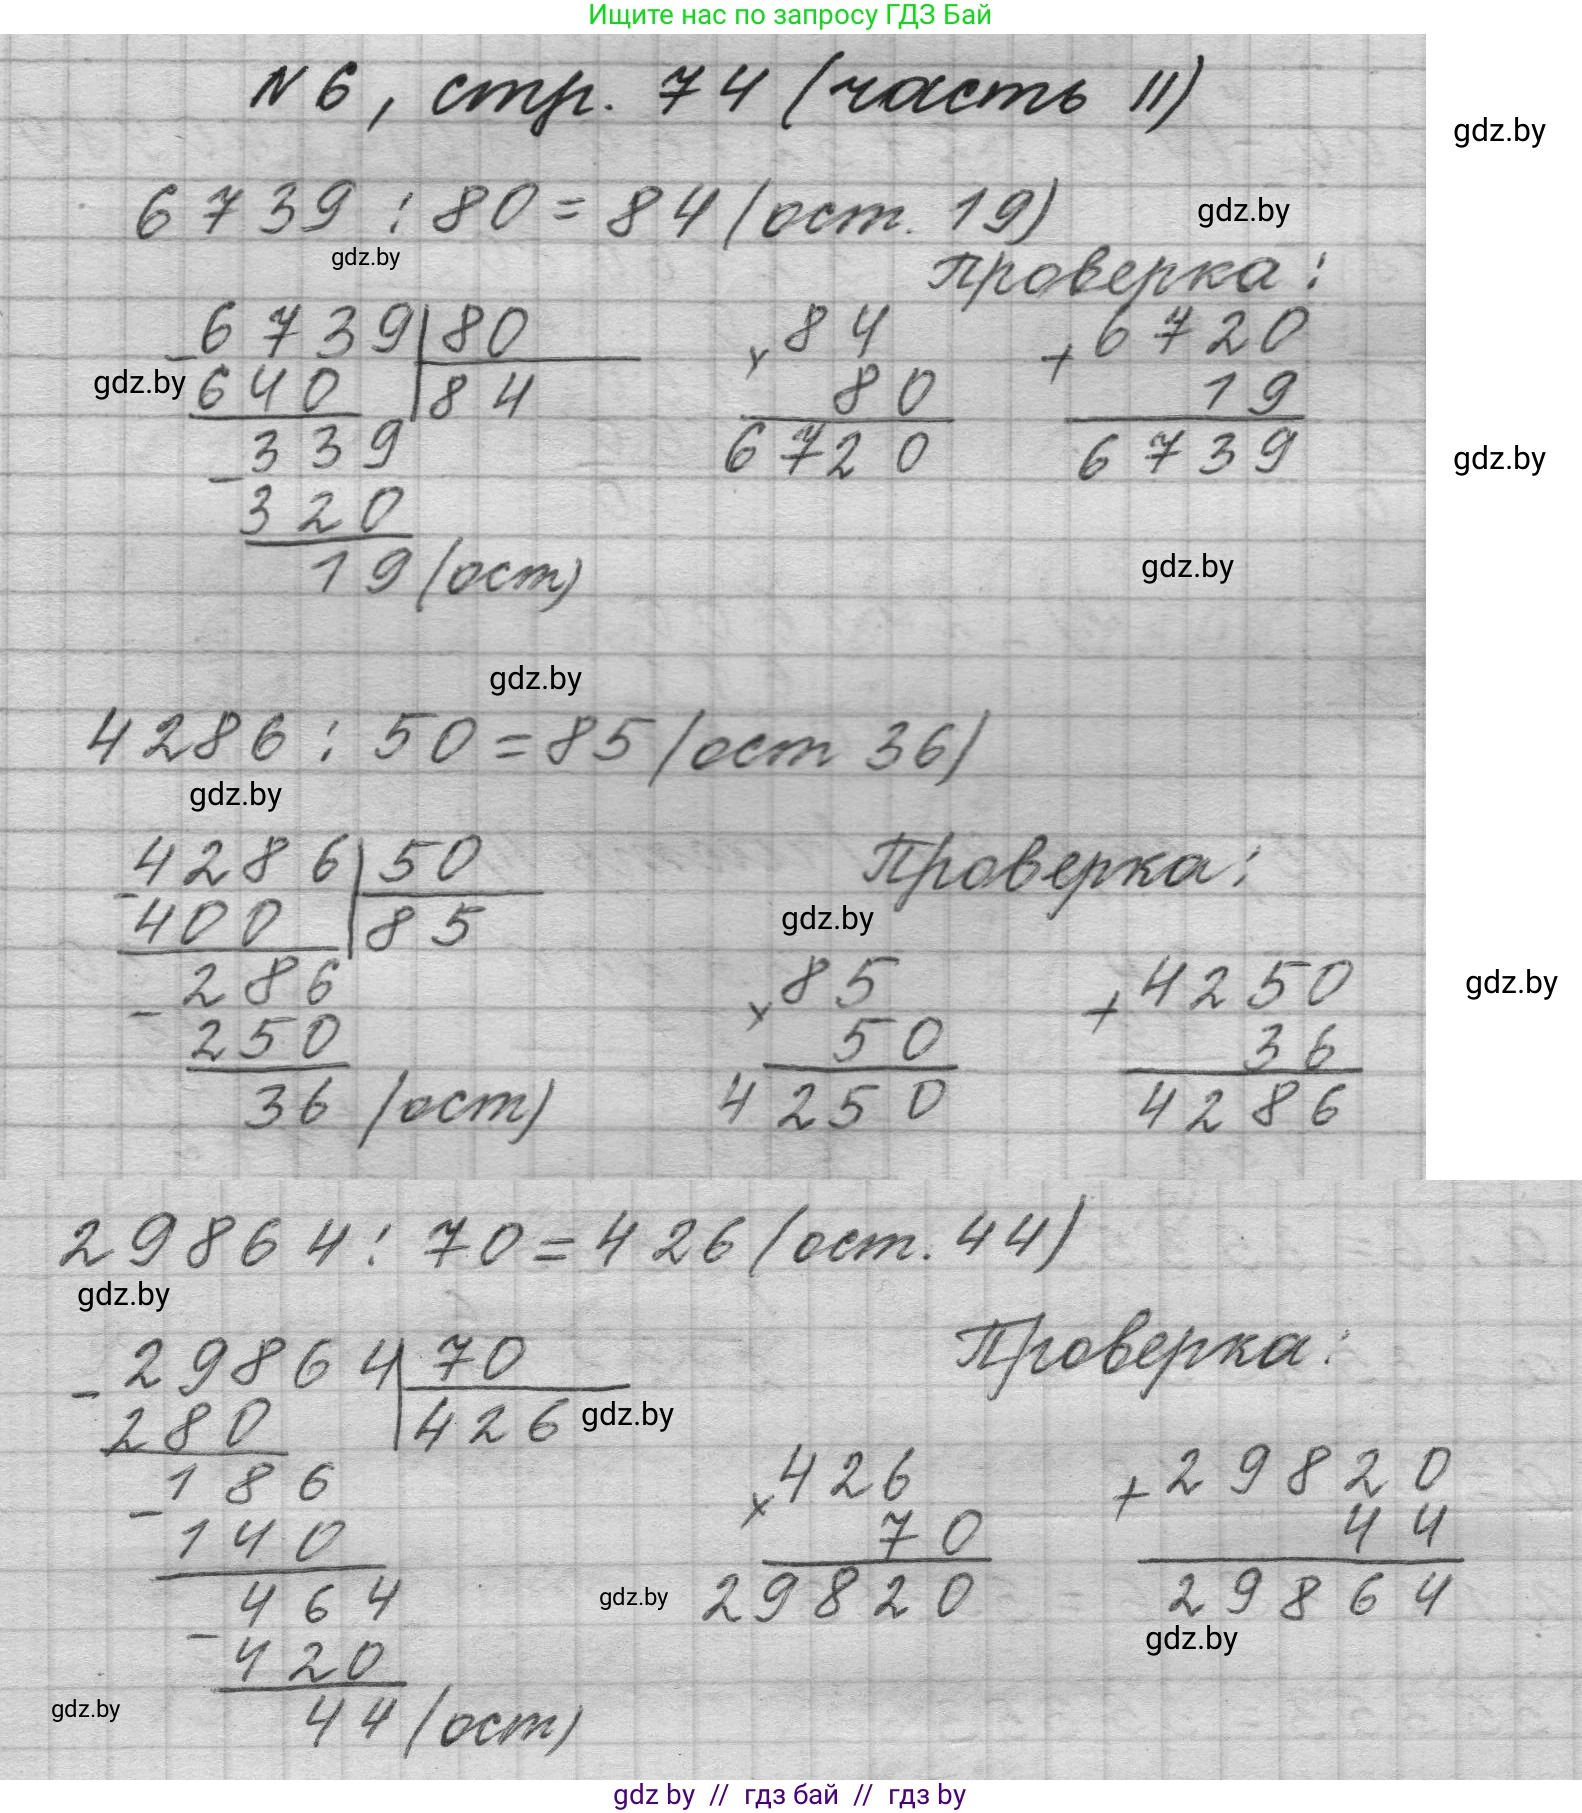 Ищите нас по запросу ГДЗ Бай
N 6, стр. 74 (часть II)
gdz.by
6739 : 80 = 84 (ост. 19)
gdz.by
gdz.by
Проверка:
- 6739 | 80
gdz.by
640 | 84
339
- 320
19 (ост)
× 84
80
6720
+ 6720
19
6739
gdz.by
gdz.by
gdz.by
4286 : 50 = 85 (ост 36)
gdz.by
Проверка:
- 4286 | 50
400 | 85
gdz.by
286
- 250
36 (ост)
× 85
50
4250
+ 4250
36
4286
gdz.by
29864 : 70 = 426 (ост. 44)
gdz.by
Проверка:
- 29864 | 70
280 | 426
gdz.by
186
- 140
464
- 420
44 (ост)
× 426
70
29820
gdz.by
+ 29820
44
29864
gdz.by
gdz.by
gdz by // гдз бай // гдз by